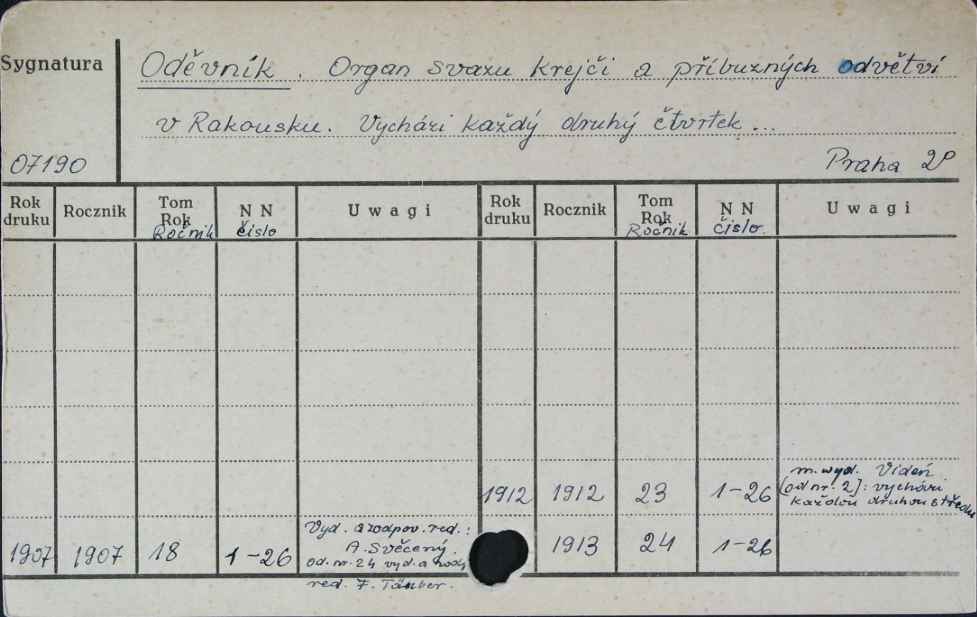 Sygnatura
Oděvník. Organ svazu krejčí a příbuzných odvětví
v Rakousku. Vychází každý druhý čtvrtek...
07190
Praha 2°
Rok druku Rocznik Tom Rok Ročník N N číslo Uwagi Rok druku Rocznik Tom Rok Ročník N N číslo. Uwagi
1912 1912 23 1-26 m. wyd. Videň
(od nr. 2): vychází
každou druhou středu
1907 1907 18 1-26 Vyd. a zodpov. red.:
A. Svěcený.
od. nr. 24 vyd. a
red. F. Täuber.
1913 24 1-26